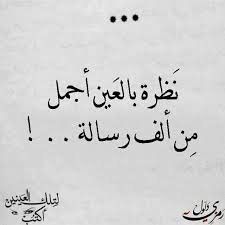 نَظرة بالعَين أجمل
مِن ألف رسالة . . . !
لتلك العينين
أكتب